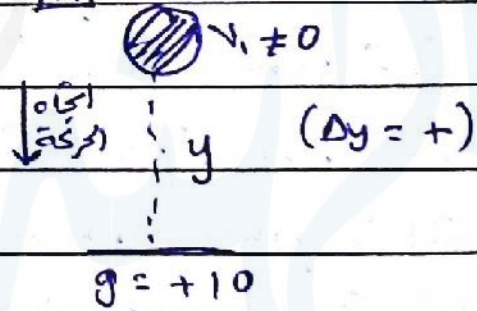 V₁ ≠ 0
اتجاه
الحركة
y
(Δy = +)
g = +10